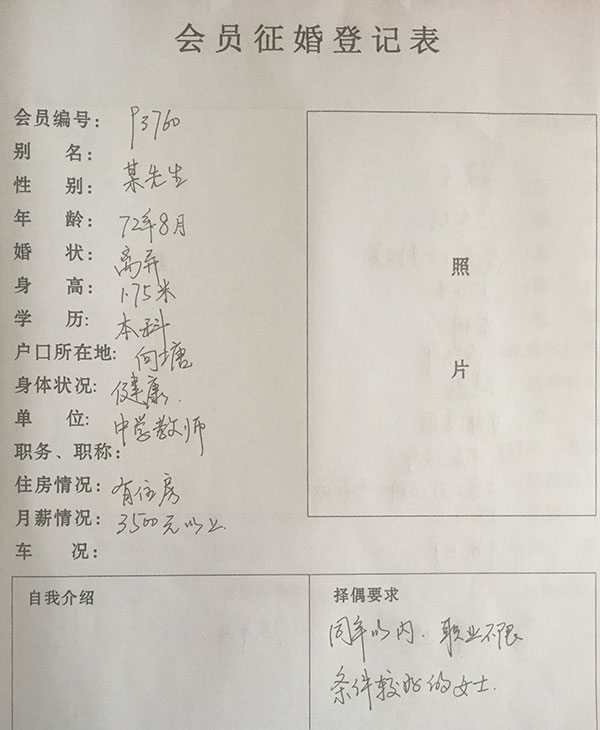 会员征婚登记表
会员编号: P3760
别 名:
性 别: 某先生
年 龄: 72年8月
婚 状: 离异
身 高: 1.75米
学 历: 本科
户口所在地: 向塘
身体状况: 健康.
单 位: 中学教师
职务、职称:
住房情况: 有住房
月薪情况: 3500元以上
车 况:
照
片
自我介绍
择偶要求
同年以内. 职业不限
条件较好的女士.